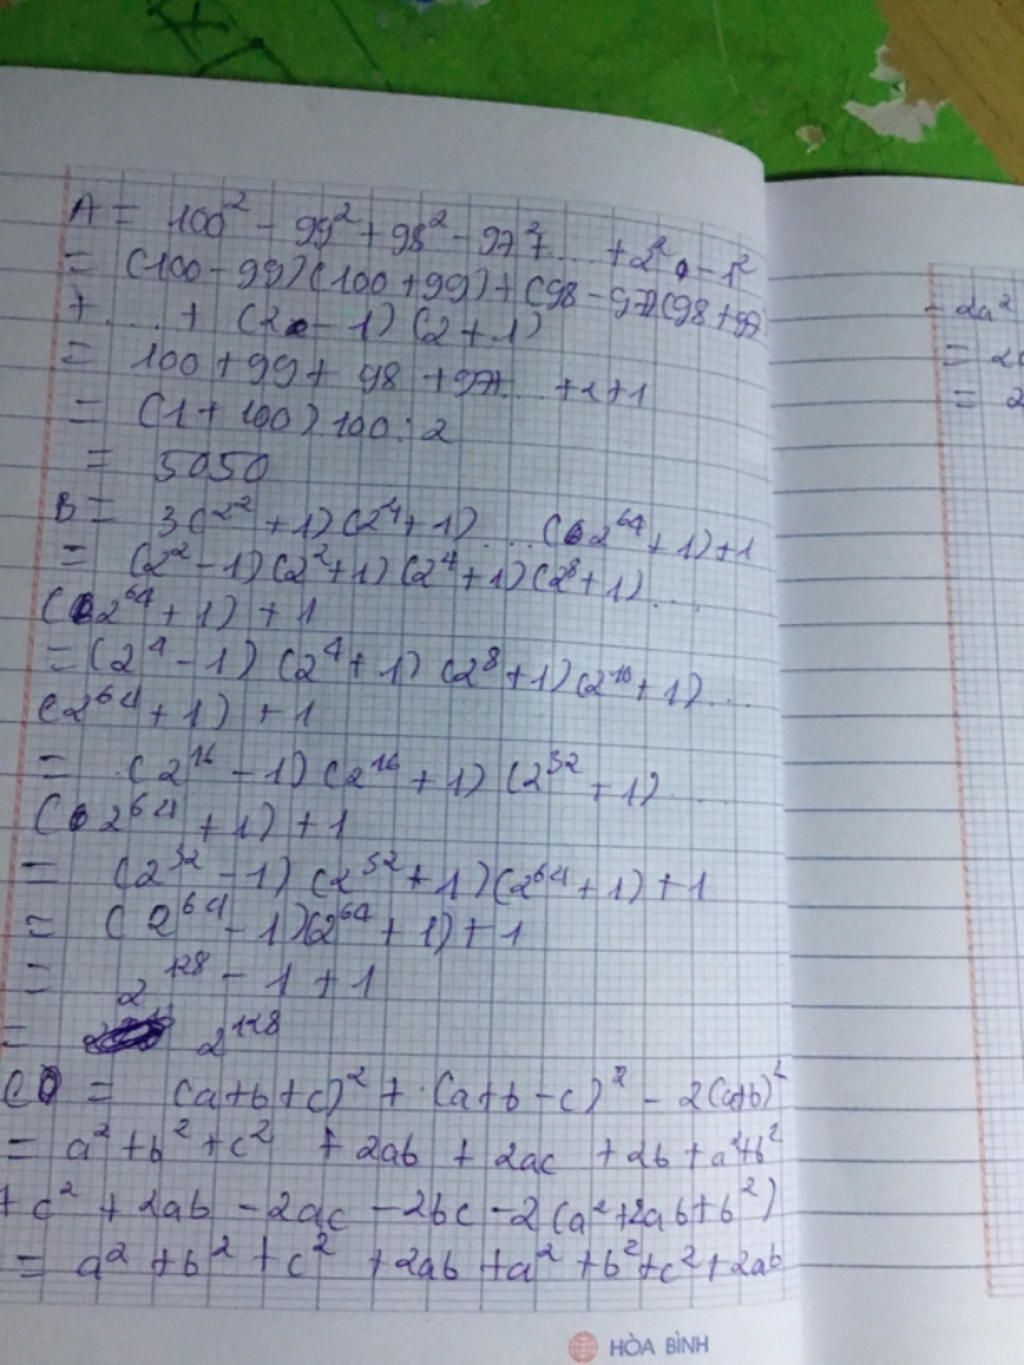 A = 100² - 99² + 98² - 97² + ... + 2² - 1²
= (100 - 99)(100 + 99) + (98 - 97)(98 + 97)
+ .... + (2 - 1)(2 + 1)
= 100 + 99 + 98 + 97 + ... + 2 + 1
= (1 + 100) 100 : 2
= 5050
B = 3(2² + 1)(2⁴ + 1) .... (2⁶⁴ + 1) + 1
= (2² - 1)(2² + 1)(2⁴ + 1)(2⁸ + 1) ....
(2⁶⁴ + 1) + 1
= (2⁴ - 1)(2⁴ + 1)(2⁸ + 1)(2¹⁶ + 1) ...
(2⁶⁴ + 1) + 1
= (2¹⁶ - 1)(2¹⁶ + 1)(2³² + 1) ....
(2⁶⁴ + 1) + 1
= (2³² - 1)(2³² + 1)(2⁶⁴ + 1) + 1
= (2⁶⁴ - 1)(2⁶⁴ + 1) + 1
= 2¹²⁸ - 1 + 1
= 2¹²⁸
C = (a + b + c)² + (a + b - c)² - 2(a + b)²
= a² + b² + c² + 2ab + 2ac + 2b + a² + b²
+ c² + 2ab - 2ac - 2bc - 2(a² + 2ab + b²)
= a² + b² + c² + 2ab + a² + b² + c² + 2ab
HÒA BÌNH
- 2a²
= 2
= 2